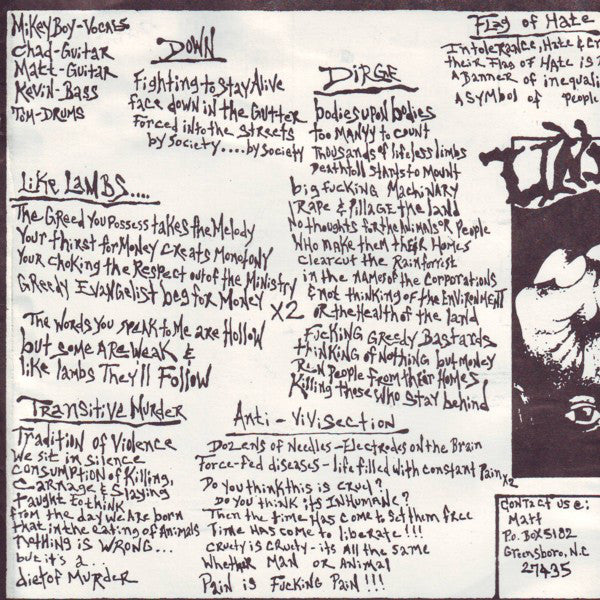 MikeyBoy-Vocals
Chad-Guitar
Matt-Guitar
Kevin-Bass
Tom-Drums
Down
Fighting to Stay Alive
face down in the Gutter
Forced into the Streets
by Society.....by Society
Like Lambs....
The Greed You Possess takes the Melody
Your thirst for Money creats Monotony
Your choking the Respect out of the Ministry
Greedy Evangelist beg for Money X2
The Words You speak to Me are Hollow
but some Are Weak &
like lambs They'll Follow
Transitive Murder
Tradition of Violence
We sit in silence
consumption of Killing,
Carnage & Slaying
taught to think
from the day we Are born
that in the eating of Animals
nothing is WRONG...
but it's a...
diet of Murder
Dirge
bodies upon bodies
too Manyy to count
Thousands of lifeless limbs
Deathtoll starts to Mount
big fucking Machinary
Rape & Pillage the land
No thoughts for the Animals or People
Who make them their Homes
clearcut the Rainforrist
in the names of the Corporations
& not thinking of the Environment
or the Health of the land
Fucking Greedy Bastards
thinking of Nothing but money
Run People from their Homes
Killing those who stay behind
Anti-Vivisection
Dozens of Needles-Electrodes on the Brain
Force-fed diseases-life filled with constant Pain x2
Do you think this is cruel?
Do you think its Inhumane?
Then the time Has come to set them free
Time Has come to liberate!!!
Cruelty is Cruelty-its All the Same
Whether Man or Animal
Pain is Fucking Pain!!!
Flag of Hate
Intolerance, Hate &
their Flag of Hate is
A Banner of
A Symbol of People
Contact us @:
Matt
P.O. Box 5182
Greensboro, N.C
27435